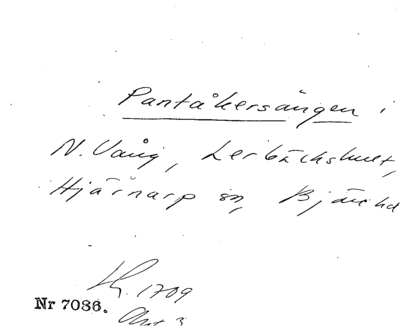 Pantåkersängen i
N. Vång, Lerbäckshult,
Hjärnarp sn, Bjäre hd
1709
Nr 7086.
Akt 3